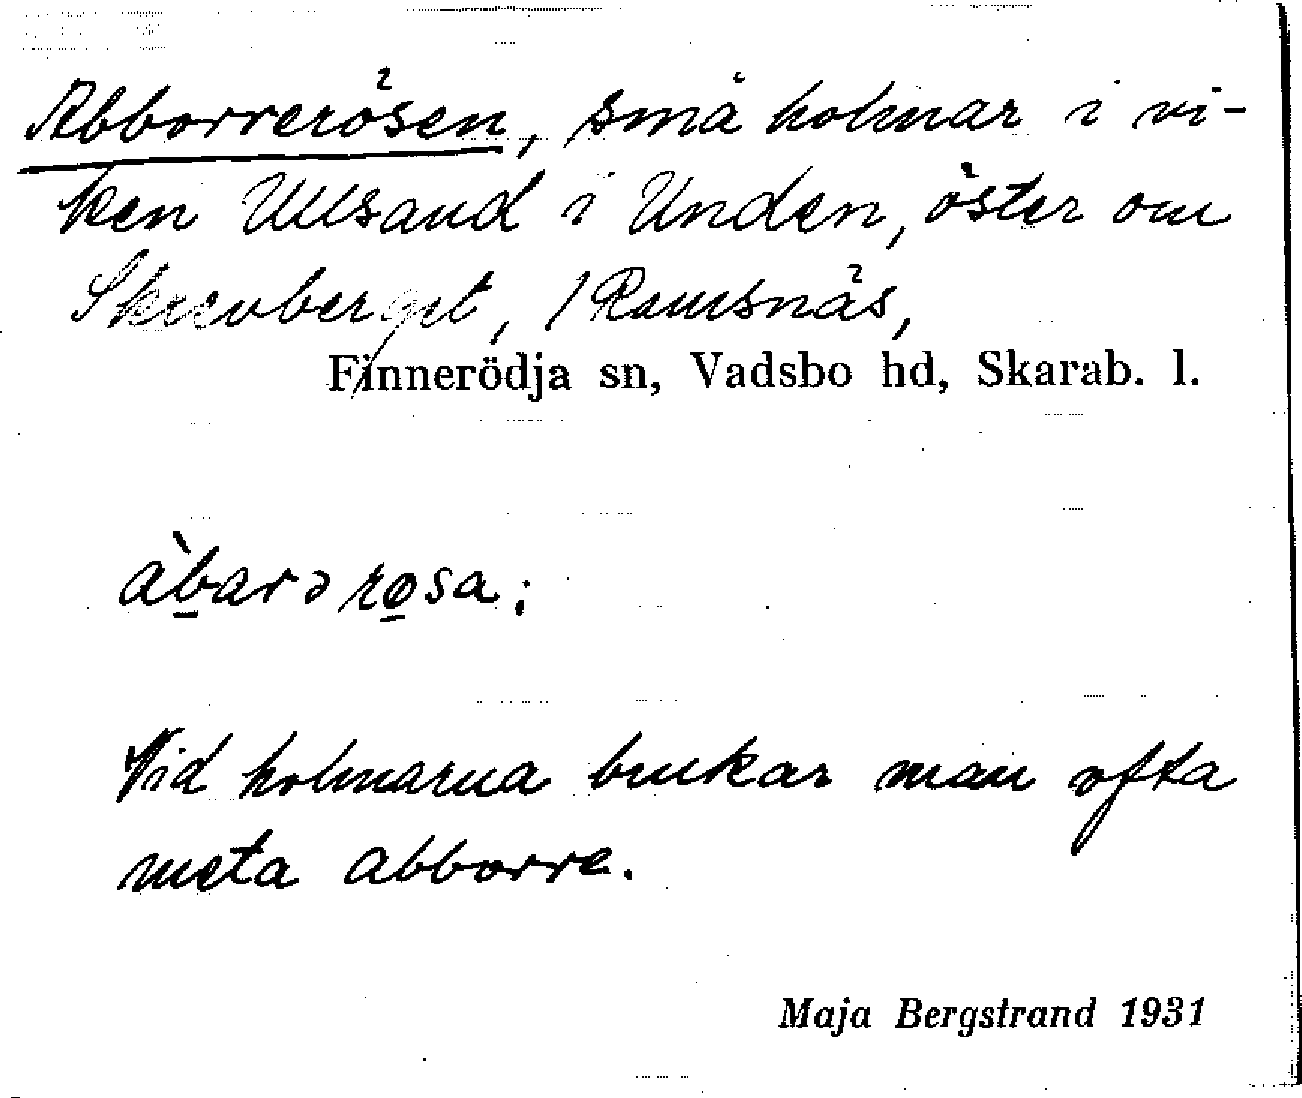 Abborrerösen, små holmar i vi-
ken Ullsand i Unden, öster om
Skruvberget, / Ramsnäs,
Finnerödja sn, Vadsbo hd, Skarab. l.
àbarə rosa;
Vid holmarna brukar man ofta
meta abborre.
Maja Bergstrand 1931